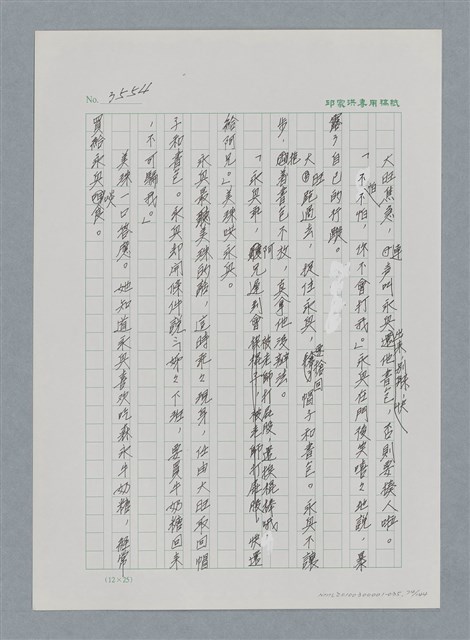 No. 3554
邱家洪專用稿紙
大旺焦急，連聲叫永興出來，別躲，快還他書包，否則要揍人啦。
「不怕，不怕，你不會打我。」永興在門後笑嘻々地說，暴
露了自己的行蹤。
大旺跑過去，捉住永興，要搶回帽子和書包。永興不讓
步，抱著書包不放，真拿他沒辦法。
「永興乖，阿兄遲到會被老師打屁股，還
給阿兄。」美珠哄永興。
永興最聽美珠的話，這時永興現身，任由大旺取回帽
子和書包。永興却開條件說：「姊々不壞，要買牛奶糖回來
，不可騙我。」
美珠一口答應。她知道永興喜歡吃森永牛奶糖，經常
買給永興吃。
(12×25)